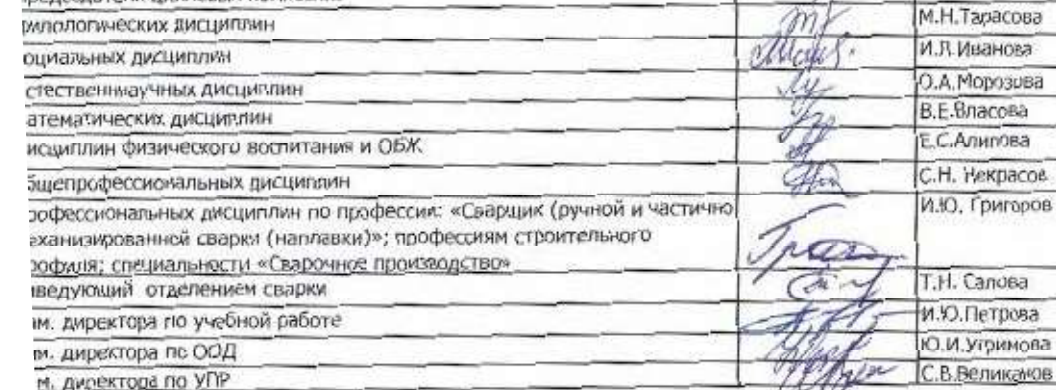 филологических дисциплин М.Н.Тарасова
оциальных дисциплин И.Л.Иванова
стественнаучных дисциплин О.А.Морозова
атематических дисциплин В.Е.Власова
исциплин физического воспитания и ОБЖ Е.С.Алипова
бщепрофессиональных дисциплин С.Н. Некрасов
рофессиональных дисциплин по профессии: «Сварщик (ручной и частично И.Ю. Григоров
еханизированной сварки (наплавки)»; профессиям строительного
рофиля; специальности «Сварочное производство»
аведующий отделением сварки Т.Н. Салова
ам. директора по учебной работе И.Ю.Петрова
м. директора по ООД Ю.И.Угримова
м. директора по УПР С.В.Великанов